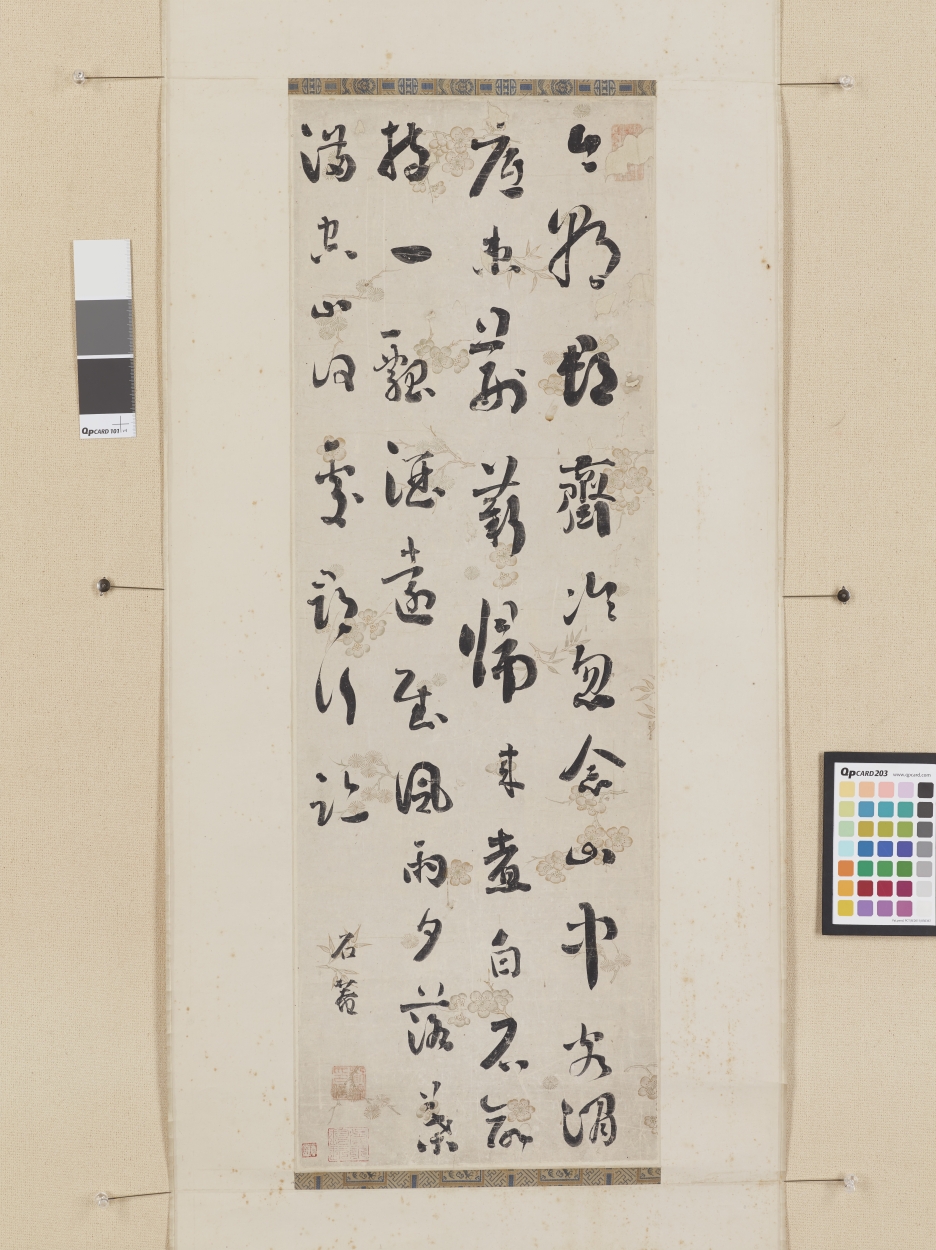 今朝郡齋冷忽念山中客澗
底束荊薪歸來煮白石欲
持一瓢酒遠慰風雨夕落葉
滿空山何處尋行跡
石菴
QpCARD 101
QpCARD 203 www.qpcard.com